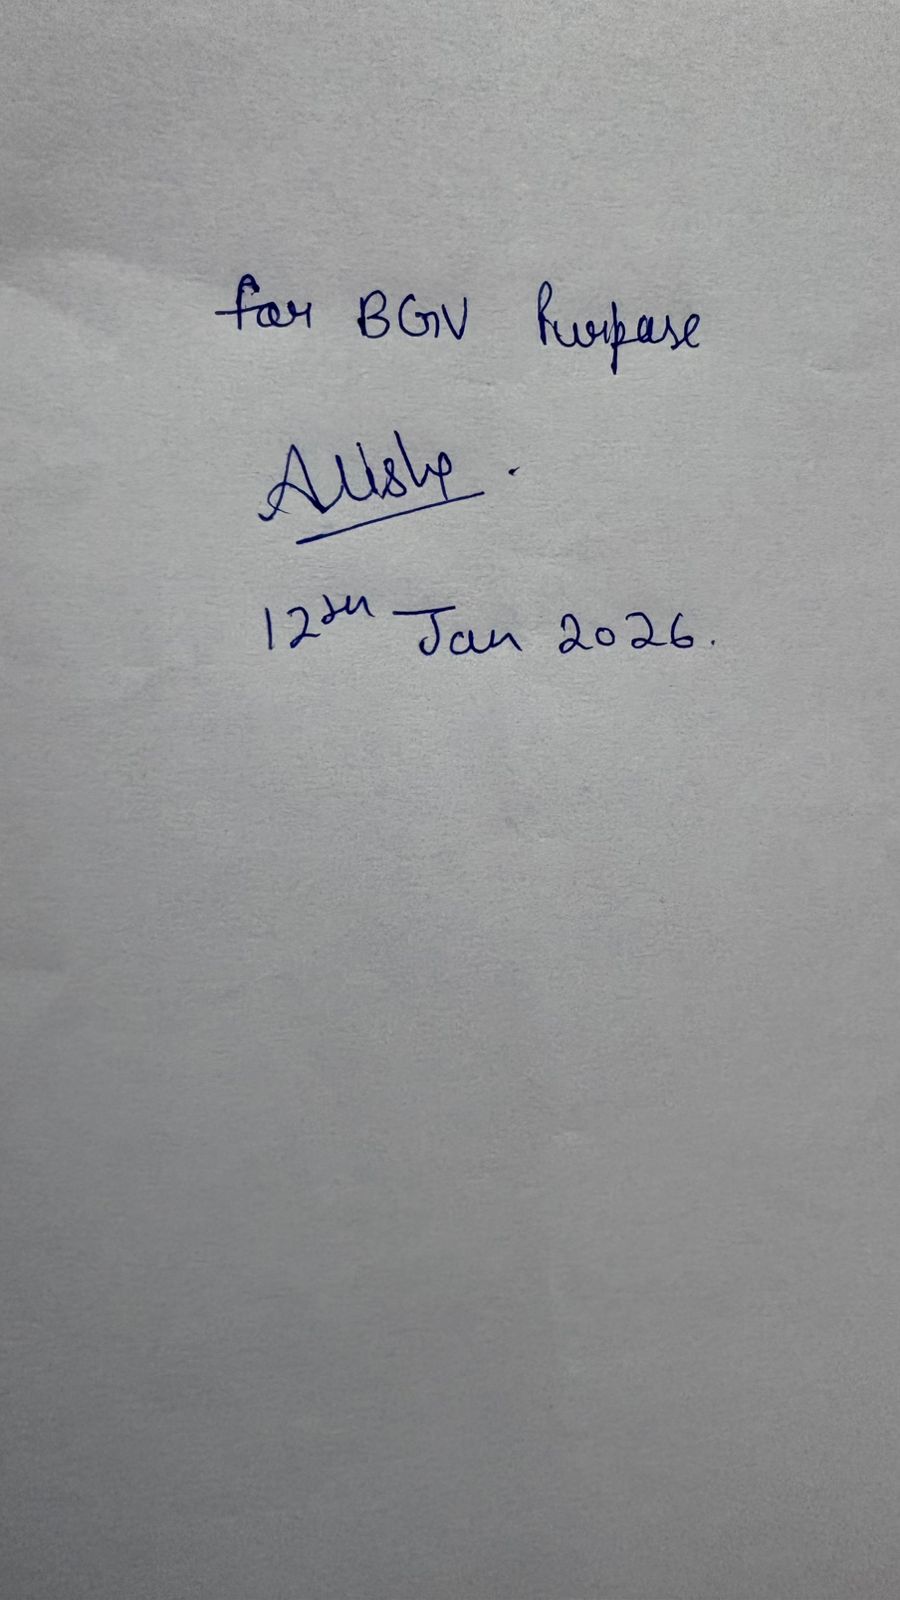 for BGV Purpose
12th Jan 2026.